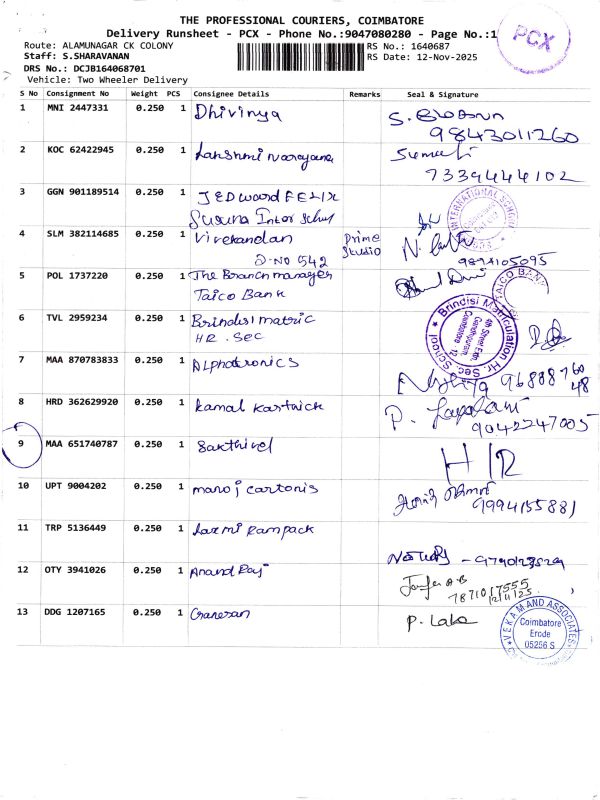 THE PROFESSIONAL COURIERS, COIMBATORE
Delivery Runsheet - PCX - Phone No.:9047080280 - Page No.:1
PCX
Route: ALAMUNAGAR CK COLONY
RS No.: 1640687
Staff: S.SHARAVANAN
RS Date: 12-Nov-2025
DRS No.: DCJB164068701
Vehicle: Two Wheeler Delivery
S No Consignment No Weight PCS Consignee Details Remarks Seal & Signature
1 MNI 2447331 0.250 1 Dhivinya
9843011260
2 KOC 62422945 0.250 1 Lakshmi Narayana Sumati
7339444102
3 GGN 901189514 0.250 1 JEDwood FELIX
INTERNATIONAL SCHOOL
4 SLM 382114685 0.250 1 Vivekandan Prime Studio
D.NO 542
9894105095
5 POL 1737220 0.250 1 The Branch manager
Taico Bank
TAICO BANK
6 TVL 2959234 0.250 1 Brindisi matric
HR. Sec
Brindisi Matriculation Hr. Sec. School
4th Street Extn.
Gandhipuram,
Coimbatore - 12
7 MAA 870783833 0.250 1 Alphatronics
96888760
48
8 HRD 362629920 0.250 1 Kamal Karthick
9042247005
9 MAA 651740787 0.250 1 Sakthivel
10 UPT 9004202 0.250 1 manoj cartonis
9994155881
11 TRP 5136449 0.250 1 Laxmi Rampack
12 OTY 3941026 0.250 1 Anand Raj
7871017555
12/11/25
13 DDG 1207165 0.250 1 Ganesan P. Laka
VEKAM AND ASSOCIATES
Coimbatore
Erode
05256 S